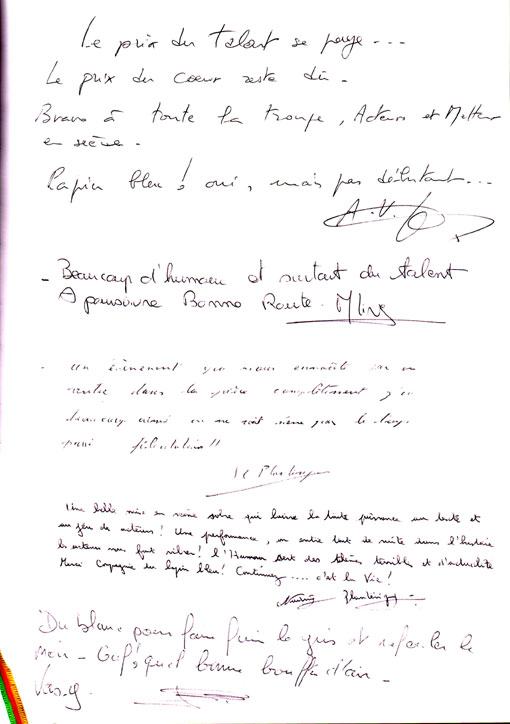 Le prix du talent se paye ...
Le prix du coeur reste dû -
Bravo à toute la troupe, Acteurs et Metteur
en scène -
Lapin bleu! oui, mais pas débutant...
A.V.
- Beaucoup d'humour et surtout du talent
A poursuivre Bonne Route.
- un évènement qui nous
rentre dans la pièce complètement j'ai
beaucoup aimé on ne voit même pas le temps
passé félicitations!!
Une belle mise en scène sobre qui laisse la toute puissance au texte et
au jeu des acteurs! Une performance, on entre tout de suite dans l'histoire
les acteurs nous font vibrer! l'Humour sert des thèmes terribles et d'actualité
Merci Compagnie du lapin bleu! Continuez .... c'est la Vie!
Du blanc pour faire fuir le gris et le
noir - Ouf! quel bonne bouffée d'air -